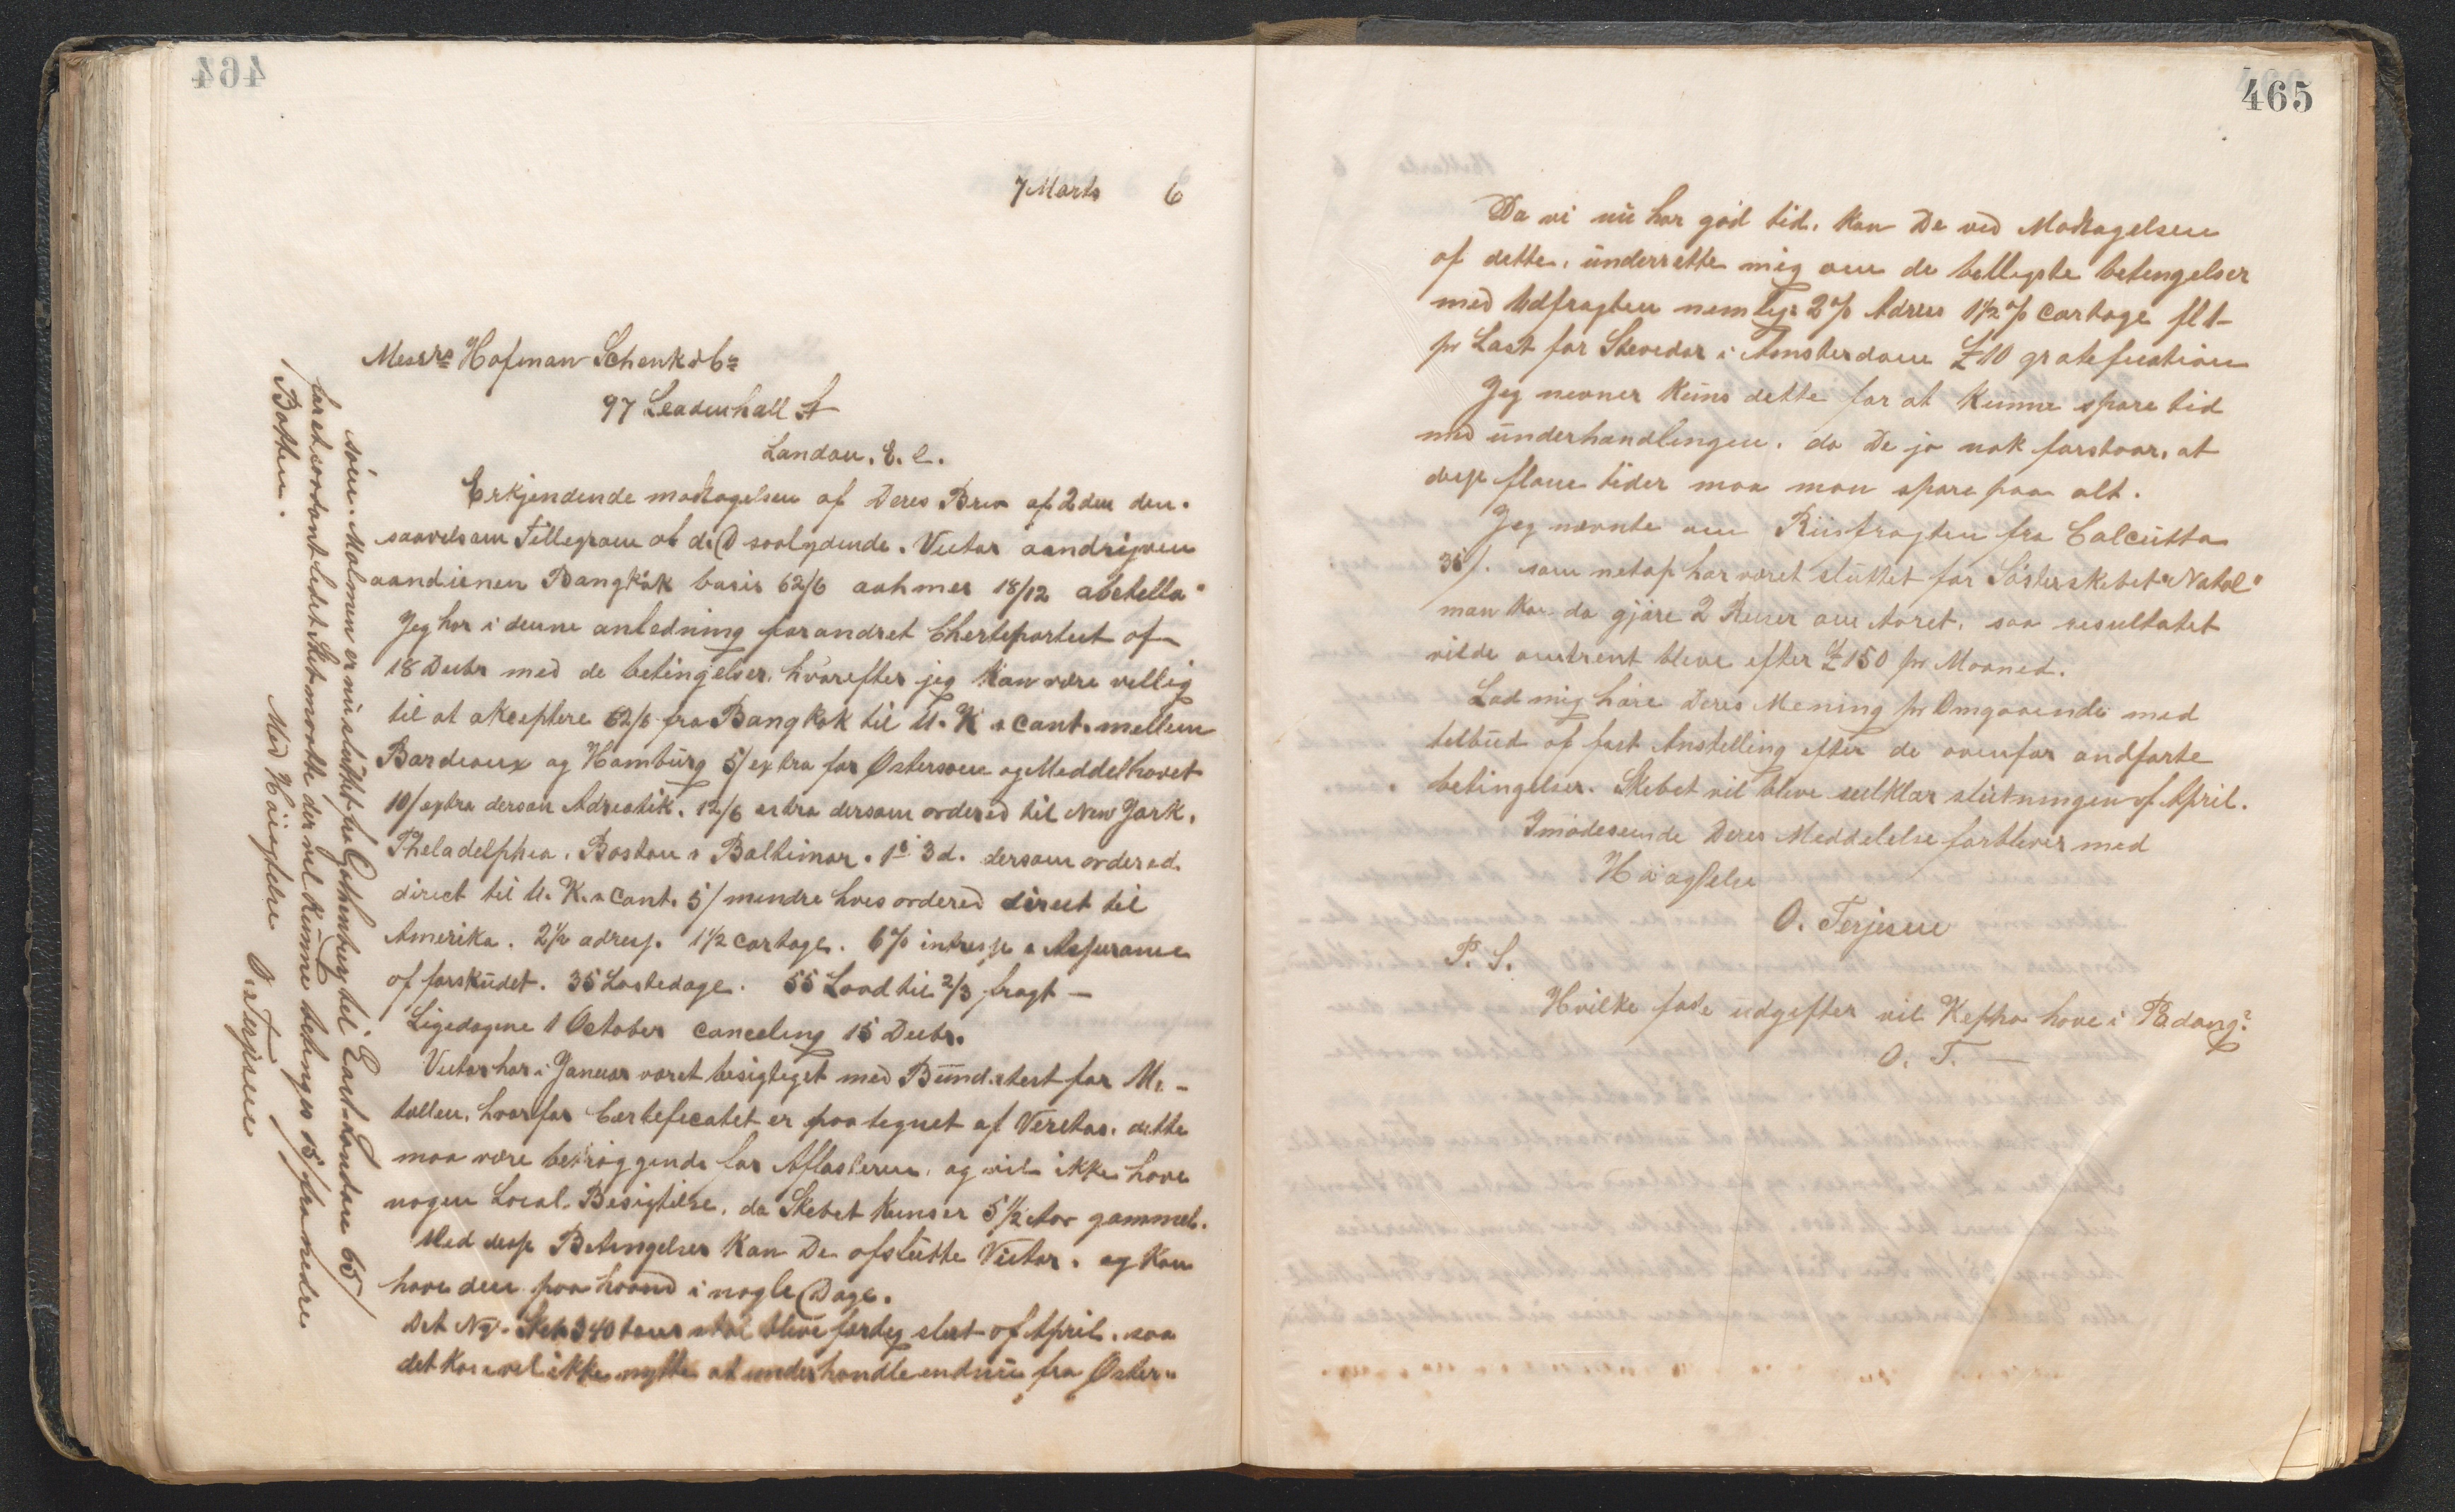 464
7 Marts 6
Messrs Hofman Schenk & Co
97 Leadenhall St
London. E. C.
Erkjendende modtagelsen af Deres Brev af 2den den.
saavelsom Tellegram af d.D saalydende. Victor aandrijven
aandienen Bangkok basis 62/6 aahmes 18/12 abstella"
Jeg har i denne anledning forandret Cherteportiet af
18 Decbr med de betingelser, hvorefter jeg kan være vellig
til at akceptere 62/6 fra Bangkok til U. K a Cont. mellem
Bordeaux og Hamburg 5/ extra for Østersøen og Meddelhavet
10/ extra dersom Adreatik. 12/6 extra dersom ordered til New York.
Pheladelphia. Boston a Baltimor. 1s 3d. dersom ordered
direct til U. K. a Cont. 5/ mindre hves ordered direct til
Amerika. 2½ adress. 1½ cartage. 6% intresse a Assurance
af forskudet. 35 Lastedage. 55 Load til 2/3 fragt —
Ligedagene 1 October canceling 15 Decbr.
Victor har i Januar været besigteget med Bund.test for Me-
tallen, hvorfor Certefecatet er paategnet af Veretas. dette
maa være betryggende for Aflasteren, og vil ikke have
nogen Local-Besigtelse, da Skebet kun er 5½ Aar gammel.
Med disse Betingelser kan De afslutte Victor. og kan
have den paa haand i nogle Dage.
Det Ny. Skeb 340 tons skal bleve færdeg slut af April. saa
det kan vel ikke nytte at underhandle endnu fra Øster-
søen. Malmen er nu sluttet fra Gothenborg tel East London 65/
for et saadant lidet Skeb maatte der vel kunne betinges 15/ fra nedre
Botten.
Med Høiagtelse O. Terjesen
465
Da vi nu har god tid. kan De ved Modtagelsen
af dette. underrette mig om de belligste betengelser
med Udfragten nemlig: 2% Adress 1½% Cartage fl 1-
pr Last for Stevedor i Amsterdam £ 10 gratefication
Jeg nevner kuns dette for at kunne spare tid
med underhandlingen. da De jo nok forstaar, at
disse flaue tider maa man spare paa alt.
Jeg nævnte om Riisfragten fra Calcutta
35/. som netop har været sluttet for Søsterskebet "Natal"
man kan da gjøre 2 Reiser om Aaret. saa resultatet
vilde omtrent bleve efter £ 150 pr Maaned.
Lad mig høre Deres Mening pr Omgaaende med
telbud af fast Anstelling efter de ovenfor andførte
betingelser. Skebet vil bleve seilklar slutningen af April.
Imødeseende Deres Meddelelse forblever med
Høiagtelse
O. Terjesen
P. S.
Hvilke fase udgifter vil Kepha have i Padang?
O. T. —